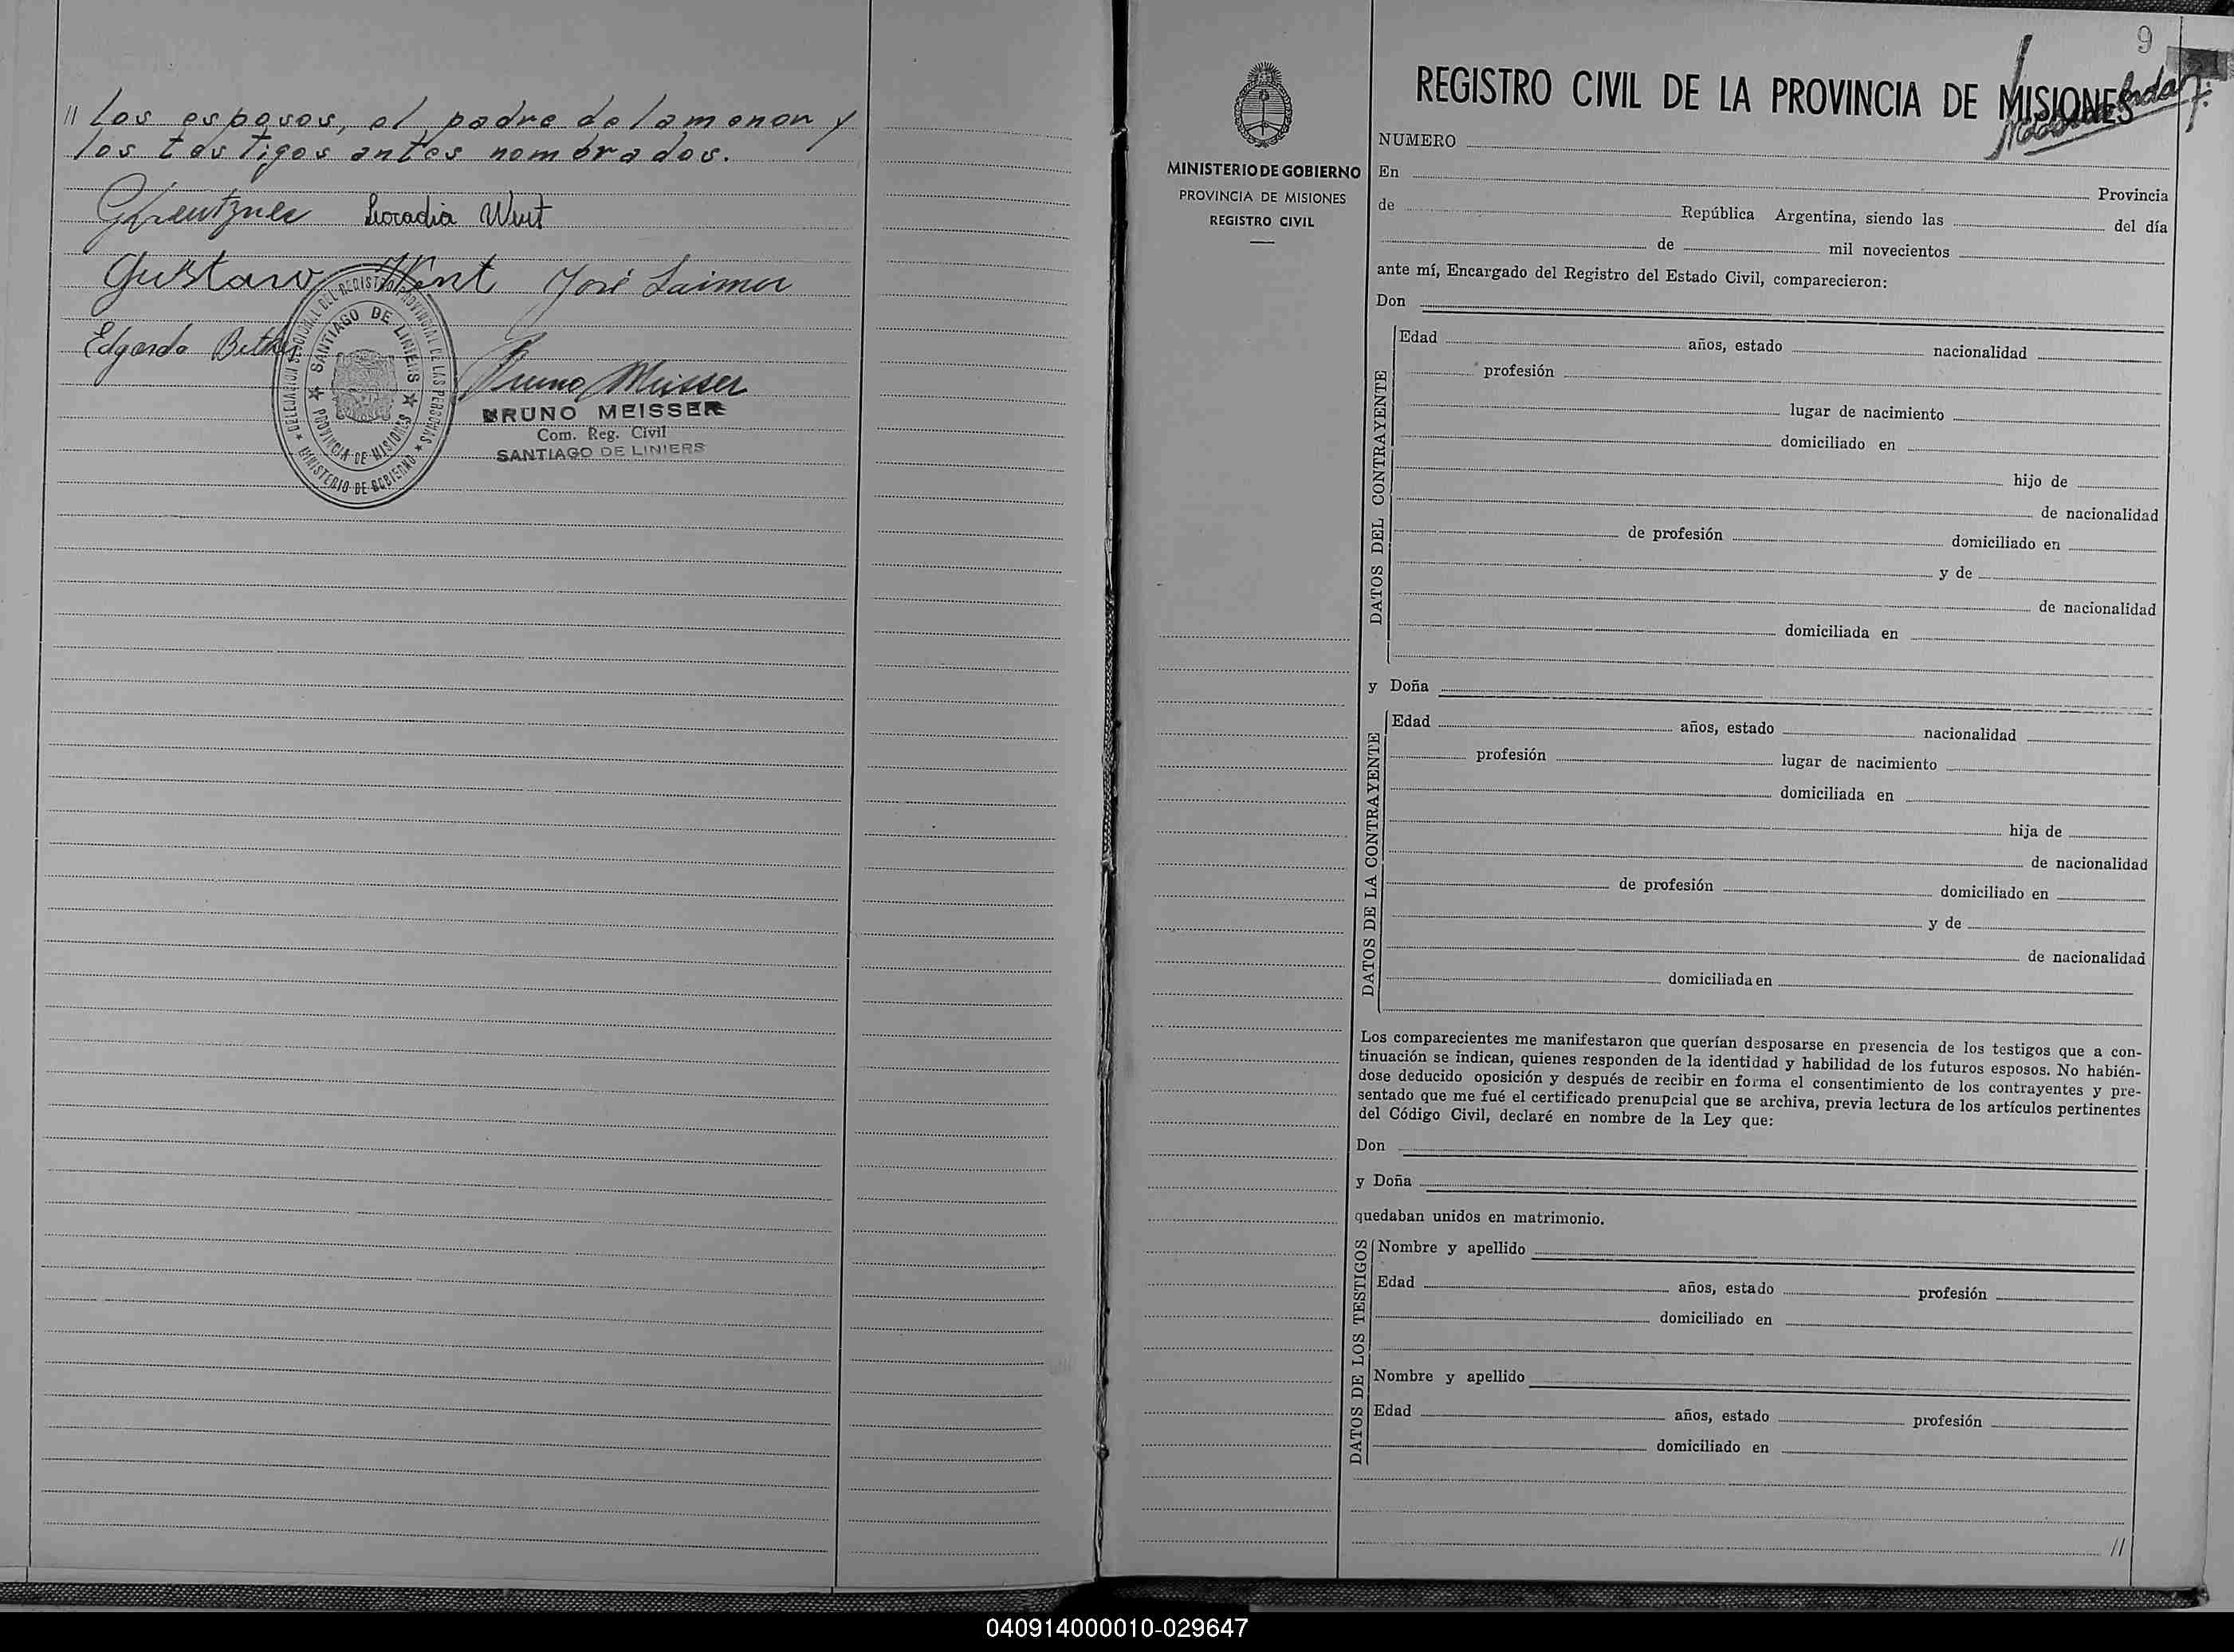 // los esposos, el padre de la menor y
los testigos antes nombrados.
Leocadia Went
Gustavo Went José Laimer
Edgardo
Bruno Meisser
BRUNO MEISSER
Com. Reg. Civil
SANTIAGO DE LINIERS
DELEGACION SECCIONAL DEL REGISTRO PROVINCIAL DE LAS PERSONAS
★ MINISTERIO DE GOBIERNO ★
★ SANTIAGO DE LINIERS ★
PROVINCIA DE MISIONES
9
MINISTERIO DE GOBIERNO
PROVINCIA DE MISIONES
REGISTRO CIVIL
REGISTRO CIVIL DE LA PROVINCIA DE MISIONES
NUMERO
En Provincia
de República Argentina, siendo las del día
de mil novecientos
ante mí, Encargado del Registro del Estado Civil, comparecieron:
Don
DATOS DEL CONTRAYENTE
Edad años, estado nacionalidad
profesión
lugar de nacimiento
domiciliado en
hijo de
de nacionalidad
de profesión domiciliado en
y de
de nacionalidad
domiciliada en
y Doña
DATOS DE LA CONTRAYENTE
Edad años, estado nacionalidad
profesión lugar de nacimiento
domiciliada en
hija de
de nacionalidad
de profesión domiciliado en
y de
de nacionalidad
domiciliada en
Los comparecientes me manifestaron que querían desposarse en presencia de los testigos que a con-
tinuación se indican, quienes responden de la identidad y habilidad de los futuros esposos. No habién-
dose deducido oposición y después de recibir en forma el consentimiento de los contrayentes y pre-
sentado que me fué el certificado prenupcial que se archiva, previa lectura de los artículos pertinentes
del Código Civil, declaré en nombre de la Ley que:
Don
y Doña
quedaban unidos en matrimonio.
DATOS DE LOS TESTIGOS
Nombre y apellido
Edad años, estado profesión
domiciliado en
Nombre y apellido
Edad años, estado profesión
domiciliado en
//
040914000010-029647